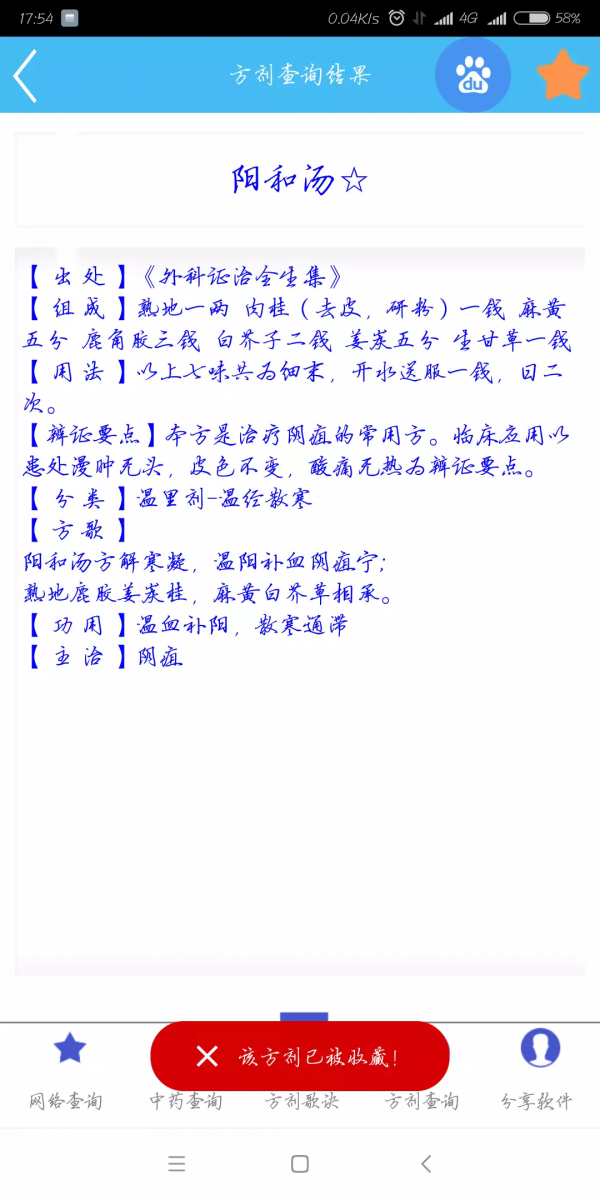 17:54
0.04K/s 4G 58%
方剂查询结果
du
阳和汤☆
【 出 处 】《外科证治全生集》
【 组 成 】熟地一两 肉桂（去皮，研粉）一钱 麻黄
五分 鹿角胶三钱 白芥子二钱 姜炭五分 生甘草一钱
【 用 法 】以上七味共为细末，开水送服一钱，日二
次。
【辨证要点】本方是治疗阴疽的常用方。临床应用以
患处漫肿无头，皮色不变，酸痛无热为辨证要点。
【 分 类 】温里剂-温经散寒
【 方 歌 】
阳和汤方解寒凝，温阳补血阴疽宁；
熟地鹿胶姜炭桂，麻黄白芥草相承。
【 功 用 】温血补阳，散寒通滞
【 主 治 】阴疽
该方剂已被收藏！
网络查询 中药查询 方剂歌诀 方剂查询 分享软件